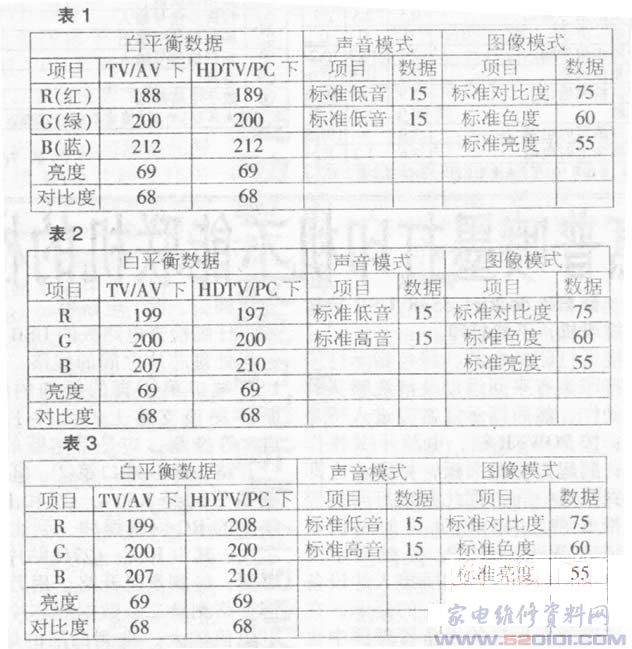 表1
白平衡数据 声音模式 图像模式
项目 TV/AV 下 HDTV/PC 下 项目 数据 项目 数据
R(红) 188 189 标准低音 15 标准对比度 75
G(绿) 200 200 标准低音 15 标准色度 60
B(蓝) 212 212 标准亮度 55
亮度 69 69
对比度 68 68
表2
白平衡数据 声音模式 图像模式
项目 TV/AV 下 HDTV/PC 下 项目 数据 项目 数据
R 199 197 标准低音 15 标准对比度 75
G 200 200 标准高音 15 标准色度 60
B 207 210 标准亮度 55
亮度 69 69
对比度 68 68
表3
白平衡数据 声音模式 图像模式
项目 TV/AV 下 HDTV/PC 下 项目 数据 项目 数据
R 199 208 标准低音 15 标准对比度 75
G 200 200 标准高音 15 标准色度 60
B 207 210 标准亮度 55
亮度 69 69
对比度 68 68
家电维修资料网
www.520101.com